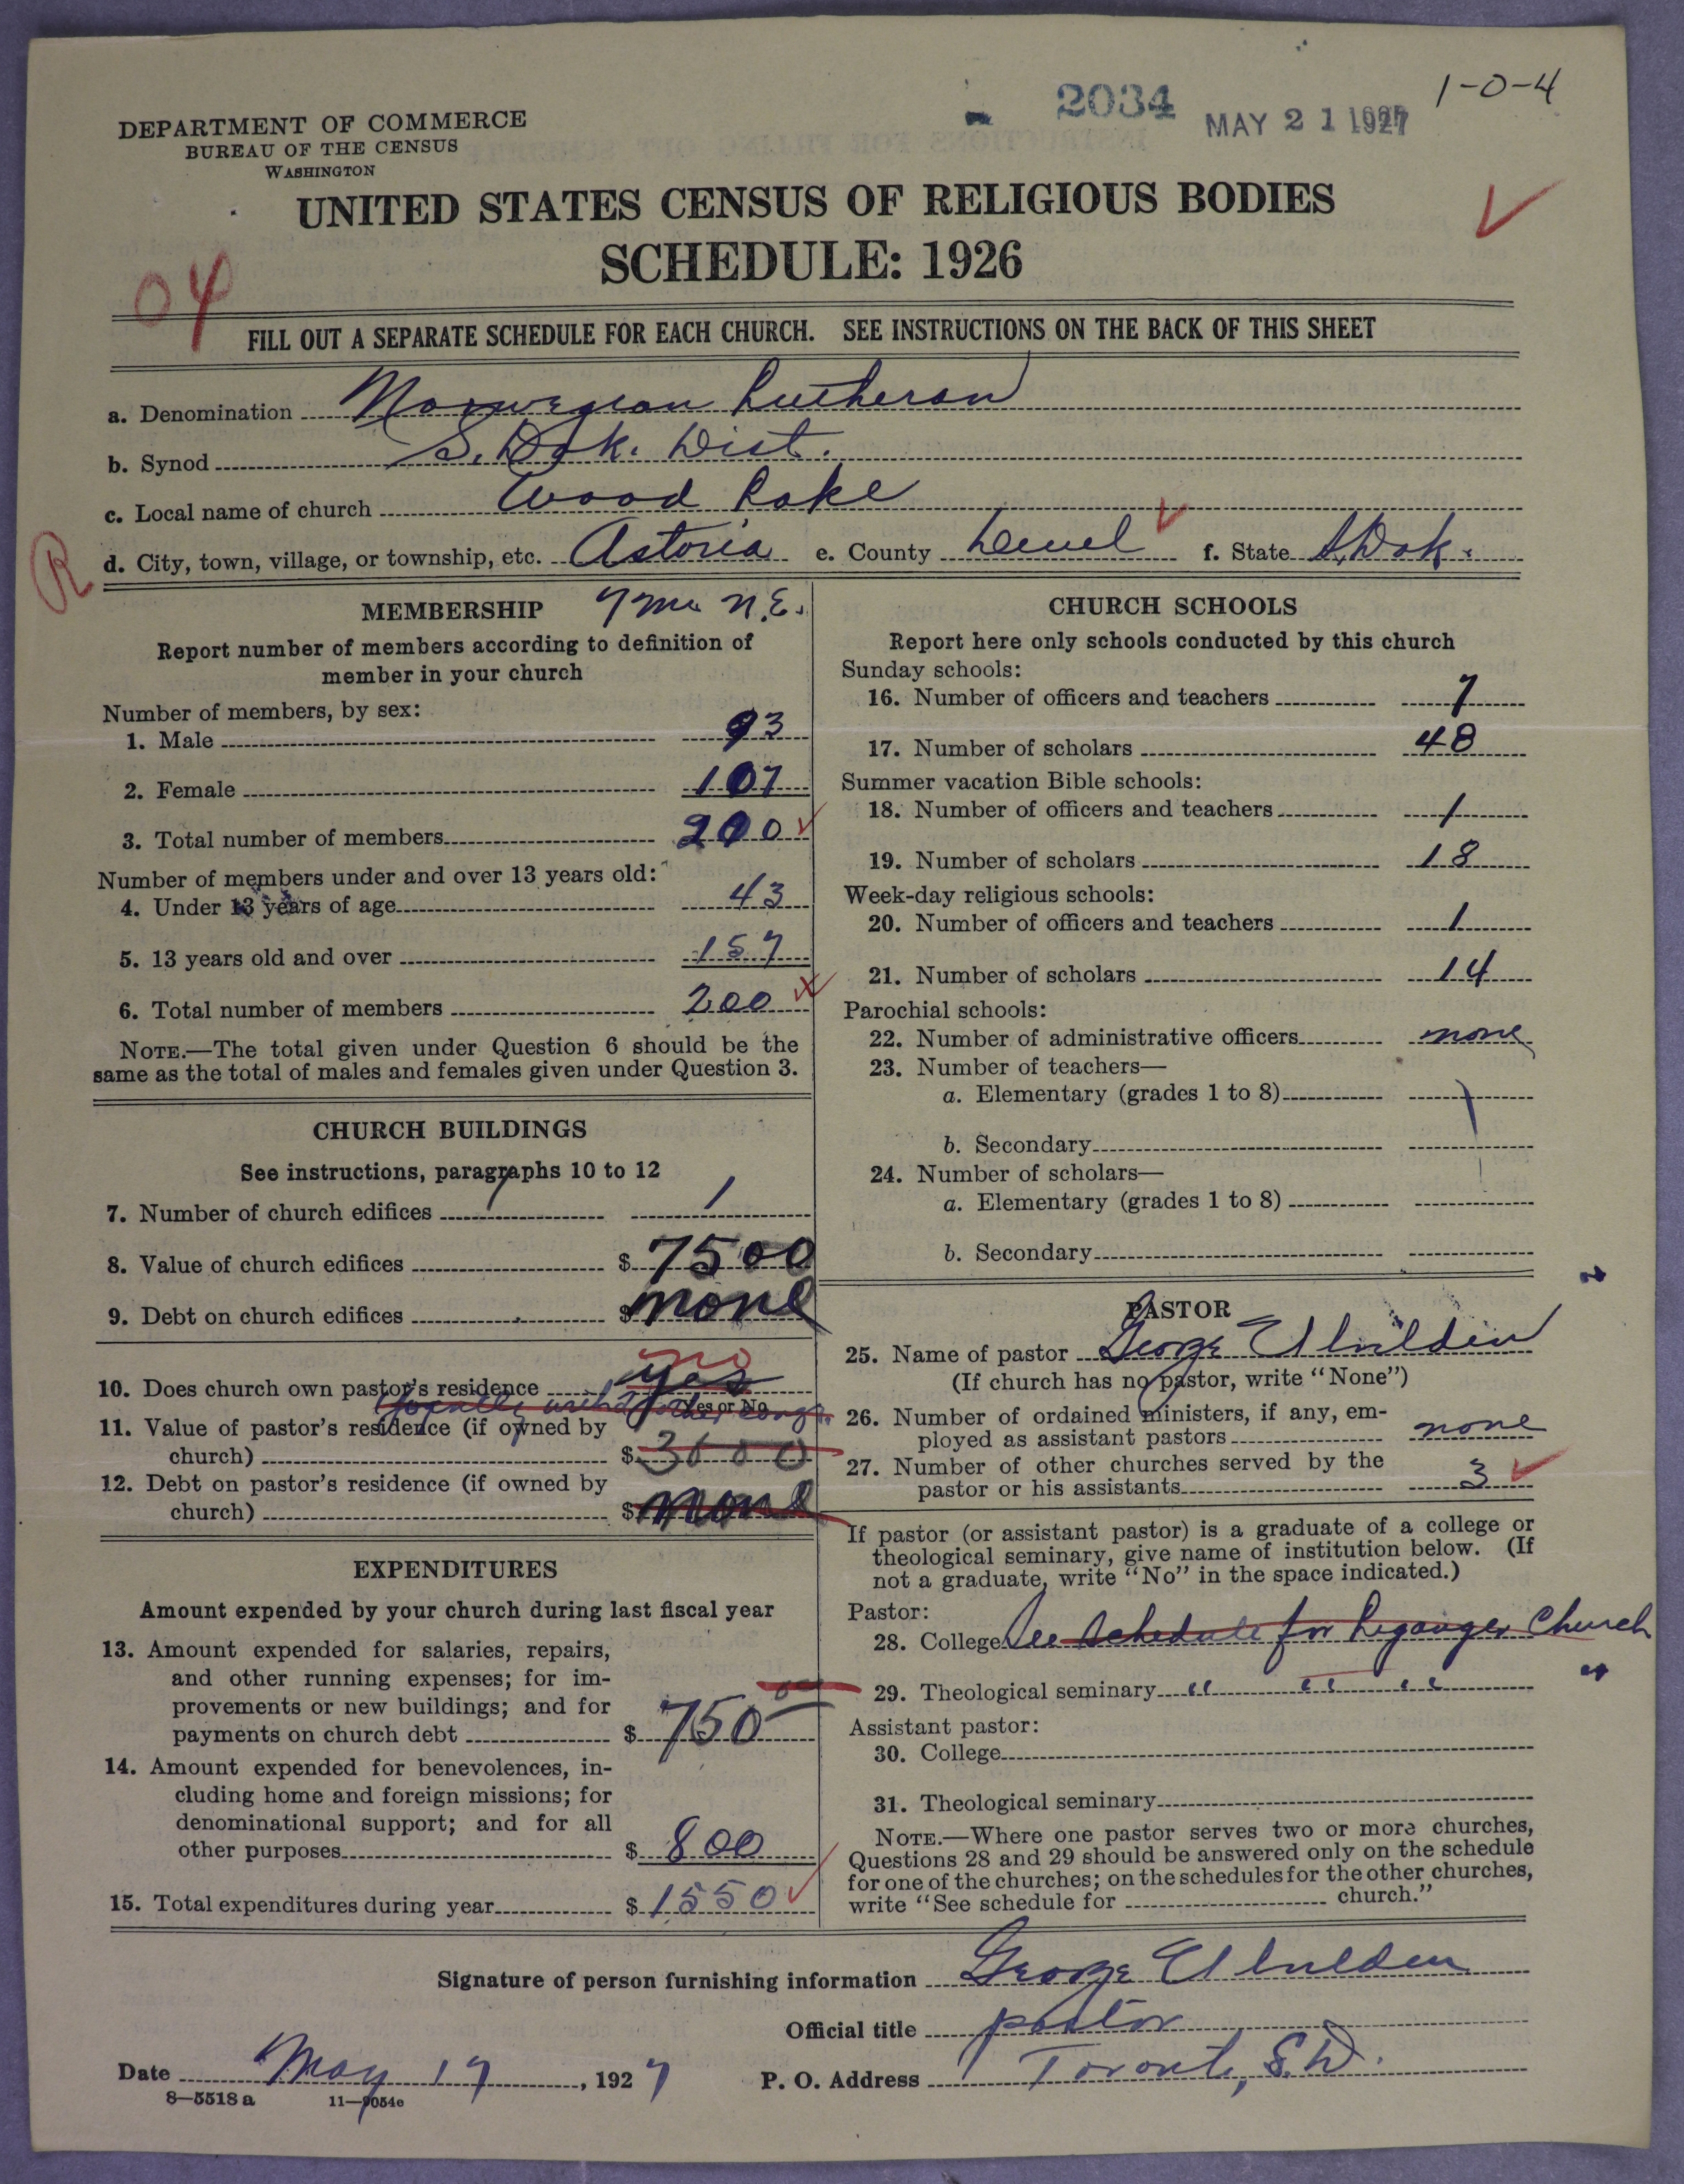 2034 MAY 21 1927 1-0-4
DEPARTMENT OF COMMERCE
BUREAU OF THE CENSUS
WASHINGTON
UNITED STATES CENSUS OF RELIGIOUS BODIES
SCHEDULE: 1926
04
FILL OUT A SEPARATE SCHEDULE FOR EACH CHURCH. SEE INSTRUCTIONS ON THE BACK OF THIS SHEET
a. Denomination Norwegian Lutheran
b. Synod S. Dak. Dist.
c. Local name of church Wood Lake
R
d. City, town, village, or township, etc. Astoria e. County Deuel f. State S. Dak.
MEMBERSHIP 7 mi N.E.
Report number of members according to definition of
member in your church
Number of members, by sex:
1. Male 93
2. Female 107
3. Total number of members 200
Number of members under and over 13 years old:
4. Under 13 years of age 43
5. 13 years old and over 157
6. Total number of members 200
NOTE.—The total given under Question 6 should be the
same as the total of males and females given under Question 3.
CHURCH BUILDINGS
See instructions, paragraphs 10 to 12
7. Number of church edifices 1
8. Value of church edifices $ 7500
9. Debt on church edifices $ none
no
10. Does church own pastor's residence yes
Yes or No
11. Value of pastor's residence (if owned by
church) $ 3600
12. Debt on pastor's residence (if owned by
church) $ none
EXPENDITURES
Amount expended by your church during last fiscal year
13. Amount expended for salaries, repairs,
and other running expenses; for im-
provements or new buildings; and for
payments on church debt $ 750 00
14. Amount expended for benevolences, in-
cluding home and foreign missions; for
denominational support; and for all
other purposes $ 800
15. Total expenditures during year $ 1550
CHURCH SCHOOLS
Report here only schools conducted by this church
Sunday schools:
16. Number of officers and teachers 7
17. Number of scholars 48
Summer vacation Bible schools:
18. Number of officers and teachers 1
19. Number of scholars 18
Week-day religious schools:
20. Number of officers and teachers 1
21. Number of scholars 14
Parochial schools:
22. Number of administrative officers none
23. Number of teachers—
a. Elementary (grades 1 to 8)
b. Secondary
24. Number of scholars—
a. Elementary (grades 1 to 8)
b. Secondary
PASTOR
25. Name of pastor George
(If church has no pastor, write "None")
26. Number of ordained ministers, if any, em-
ployed as assistant pastors none
27. Number of other churches served by the
pastor or his assistants 3
If pastor (or assistant pastor) is a graduate of a college or
theological seminary, give name of institution below. (If
not a graduate, write "No" in the space indicated.)
Pastor:
28. College See schedule for Church
29. Theological seminary " " "
Assistant pastor:
30. College
31. Theological seminary
NOTE.—Where one pastor serves two or more churches,
Questions 28 and 29 should be answered only on the schedule
for one of the churches; on the schedules for the other churches,
write "See schedule for church."
Signature of person furnishing information George
Official title pastor
Date May 17, 1927 P. O. Address Toronto, S.D.
8-5518 a 11-9054c